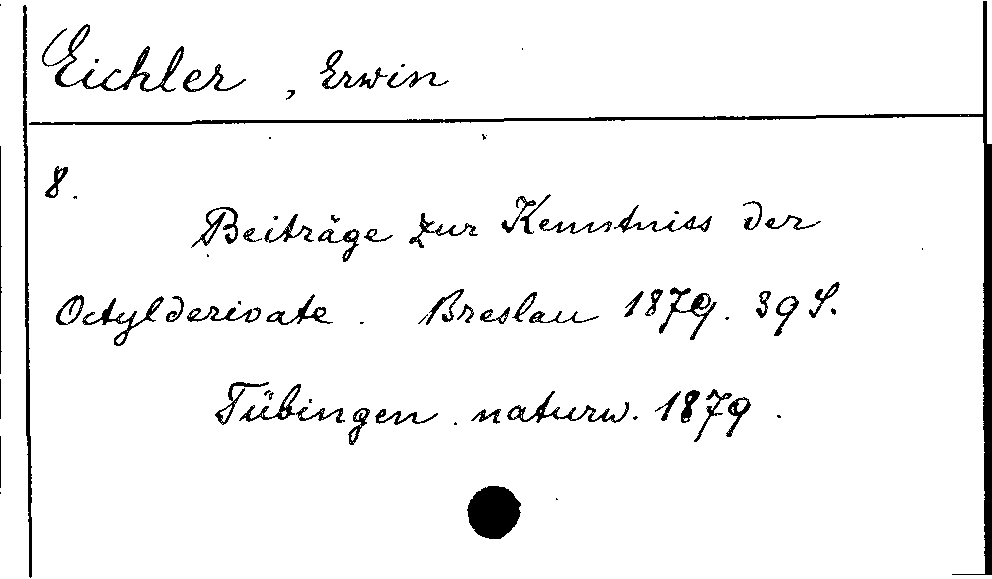 Eichler, Erwin
8.
Beiträge zur Kenntniss der
Octylderivate. Breslau 1879. 39 S.
Tübingen. naturw. 1879.